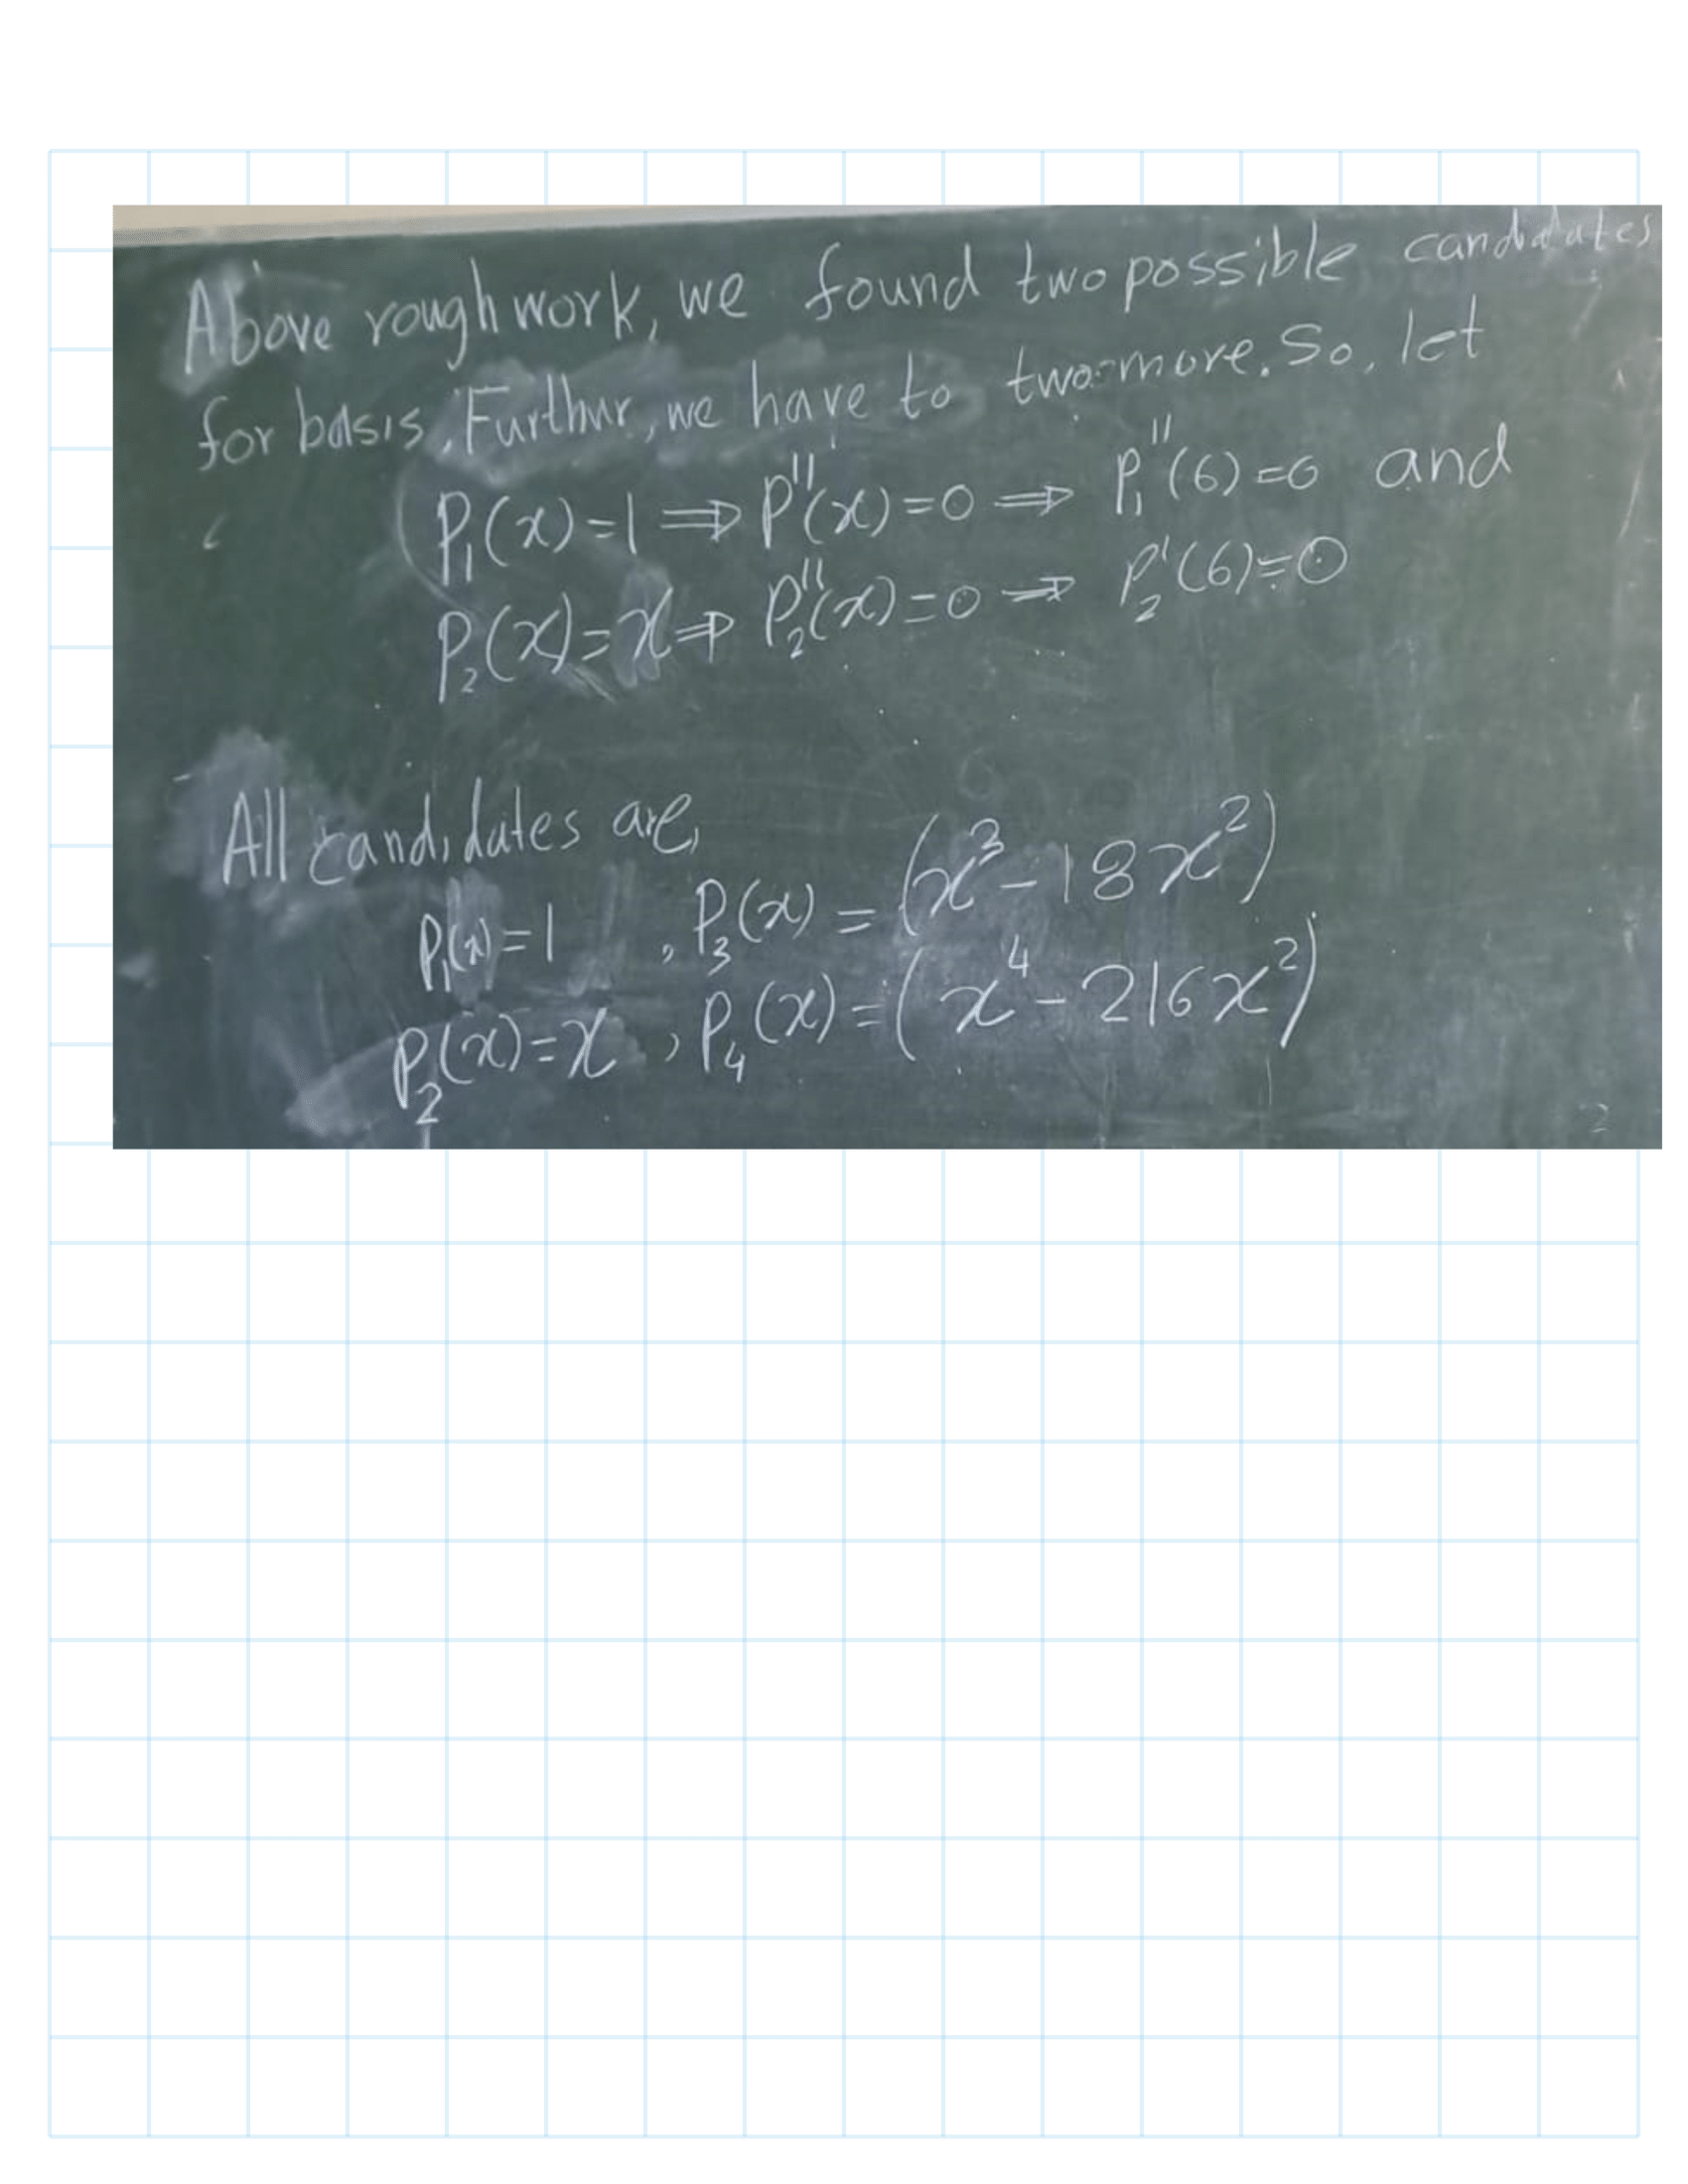 Above rough work, we found two possible candidates
for basis. Furthur, we have to two more. So, let
P₁(x)=1 ⇒ P''(x)=0 ⇒ P₁''(6)=0 and
P₂(x)=x ⇒ P₂''(x)=0 ⇒ P₂'(6)=0
All candidates are,
P₁(x)=1 , P₃(x) = (x³-18x²)
P₂(x)=x , P₄(x)=(x⁴-216x²)
2